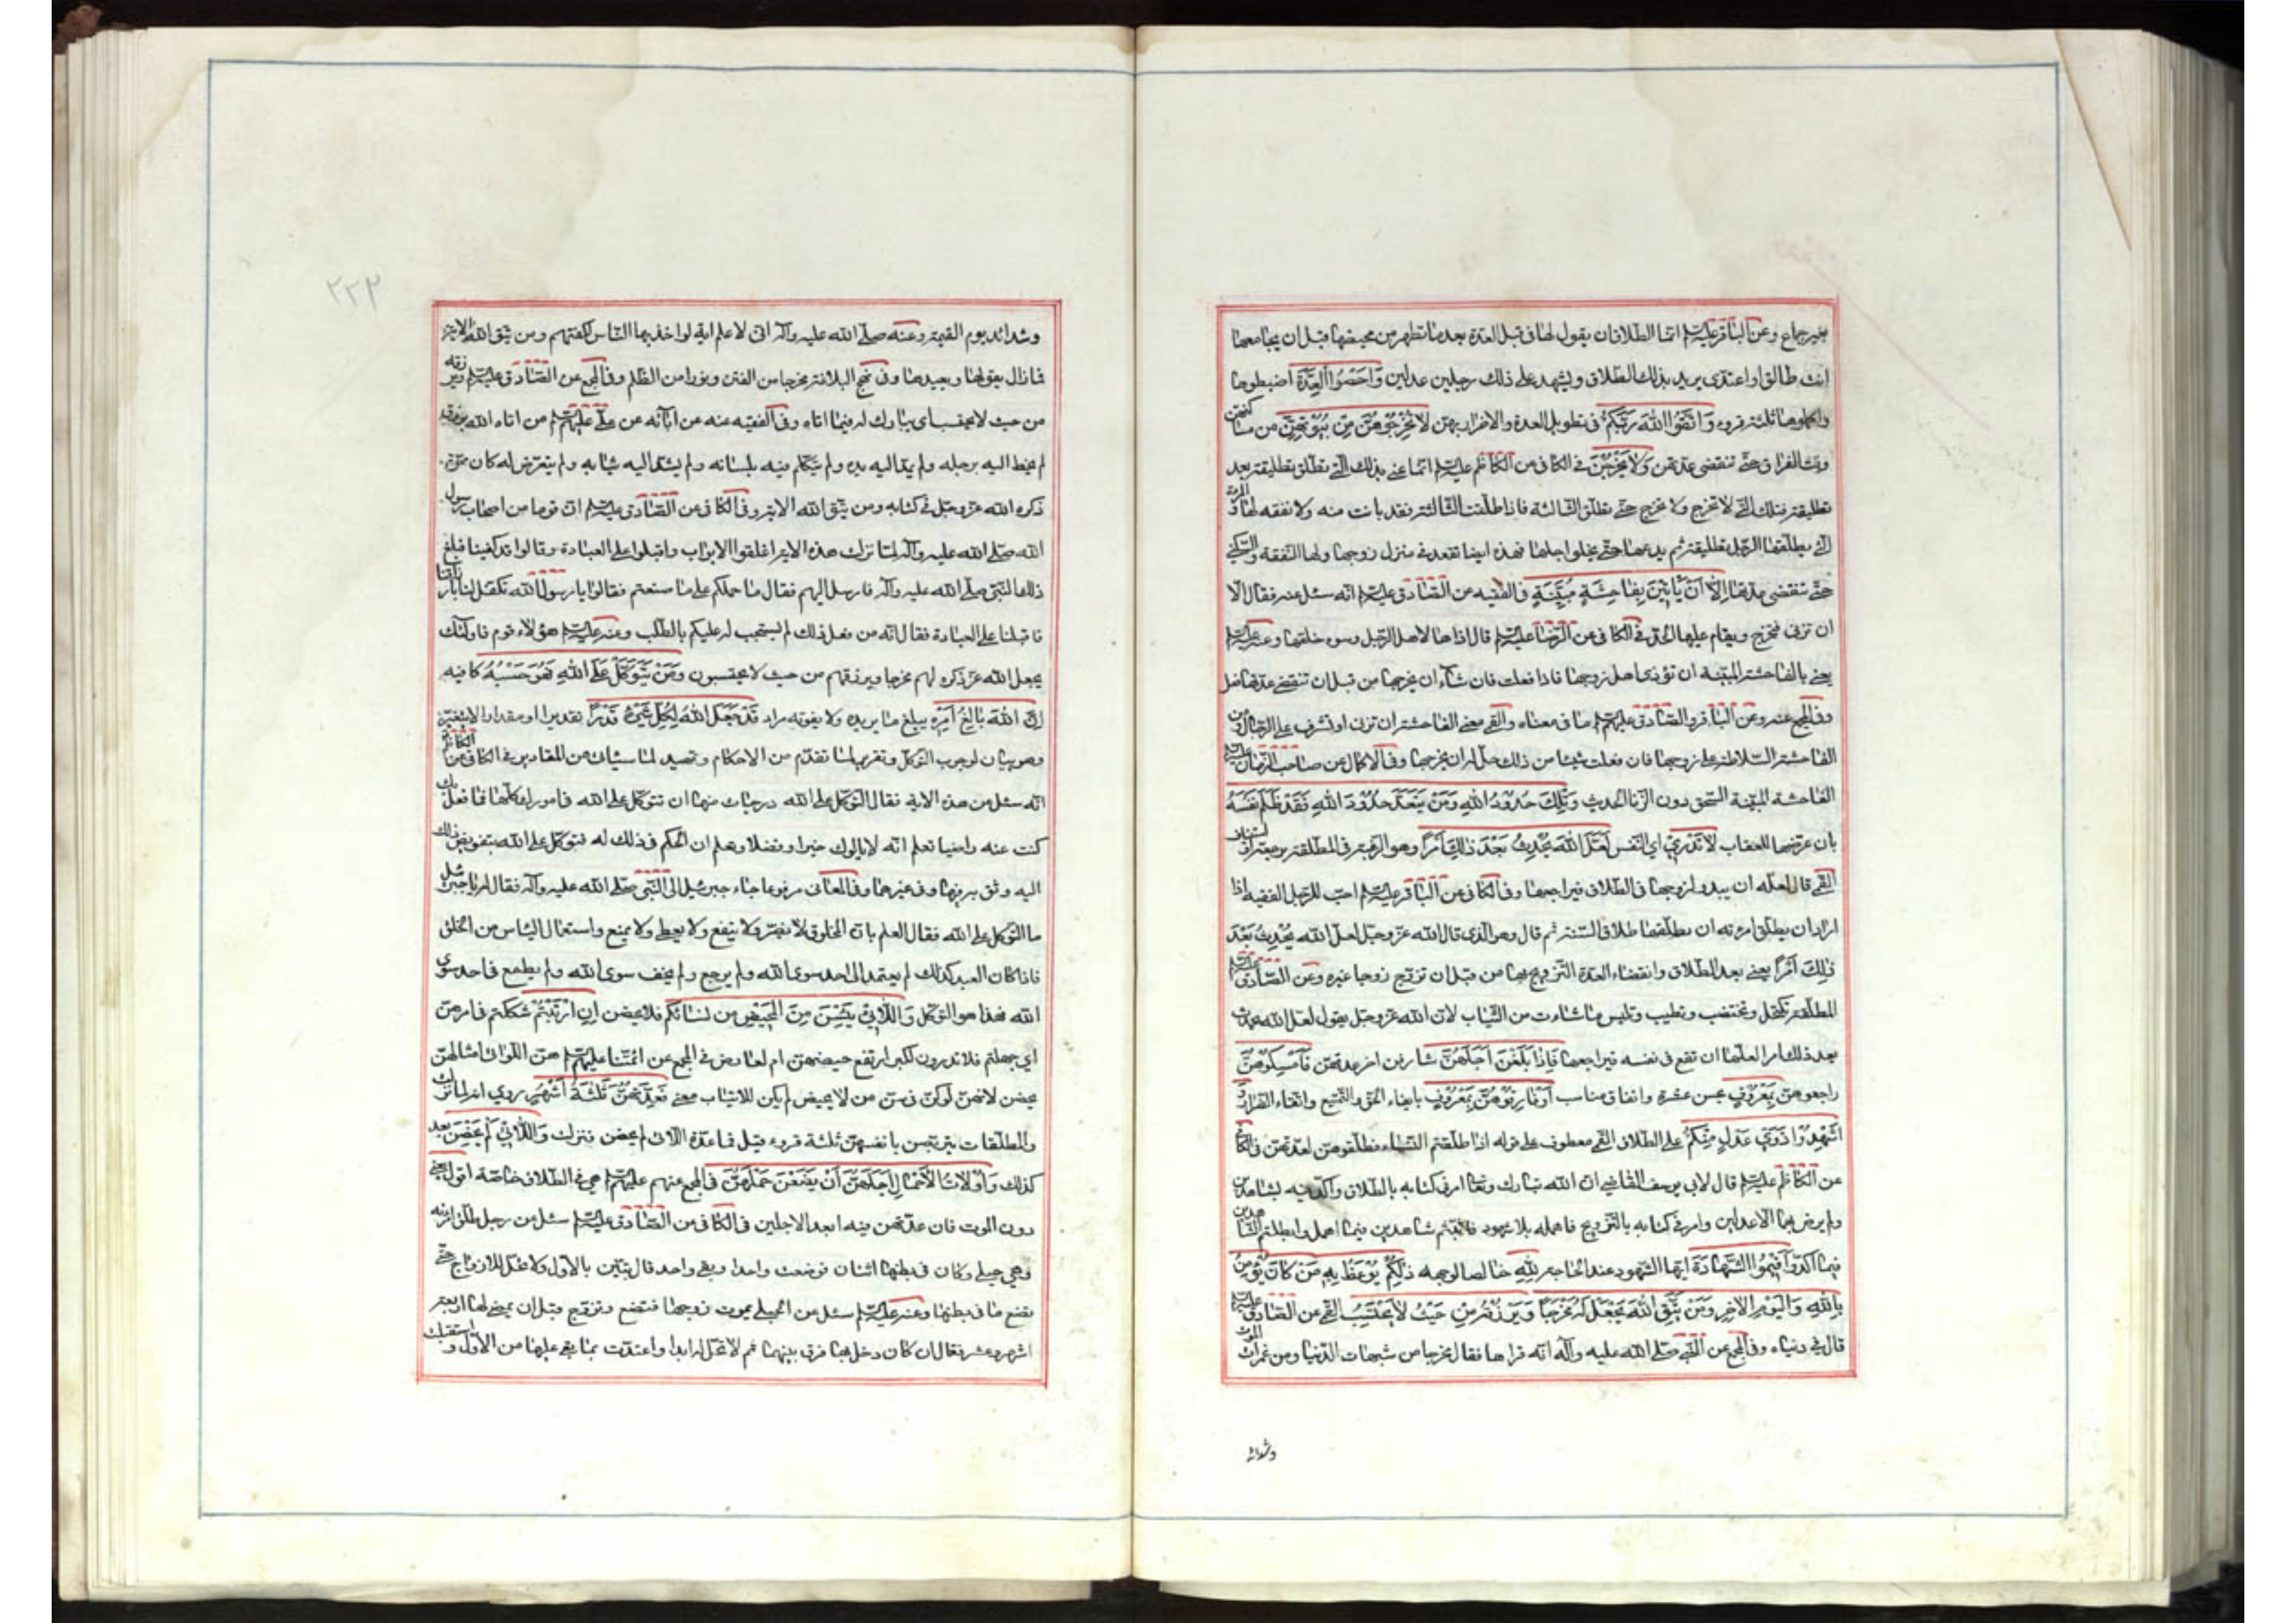 بغير جماع وعن الباقر عليه السلم انما الطلاق ان يقول لها في قبل العدة بعد ما تطهر من محيضها قبل ان يجامعها
انت طالق او اعتدى يريد بذلك الطلاق ويشهد على ذلك رجلين عدلين وَاَحْصُوا الْعِدَّةَ اضبطوها
واكملوها ثلثة قروء وَاتَّقُوا اللّٰهَ رَبَّكُمْ في تطويل العدة والاضرار بهن لَا تُخْرِجُوهُنَّ مِنْ بُيُوتِهِنَّ من مساكنهن
وقت الفراق حتى تنقضى عدتهن وَلَا يَخْرُجْنَ في الكافى عن الكاظم عليه السلم انما عنى بذلك التى تطلق تطليقة بعد
تطليقة فتلك التى لا تخرج ولا تخرج حتى تطلق الثالثة فاذا طلقت الثالثة فقد بانت منه ولا نفقة لها والمرءة
التى يطلقها الرجل تطليقة ثم يدعها حتى يخلوا اجلها فهذه ايضا تقعد فى منزل زوجها ولها النفقة والسكنى
حتى تنقضى عدتها اِلَّا اَنْ يَأْتِينَ بِفَاحِشَةٍ مُبَيِّنَةٍ في الفقيه عن الصادق عليه السلم انه سئل عنه فقال الا
ان تزنى فتخرج ويقام عليها الحد وفى الكافى عن الرضا عليه السلم قال اذاها لاهل الرجل وسوء خلقها وعنه عليه السلم
يعنى بالفاحشة المبينة ان تؤذى اهل زوجها فاذا فعلت فان شاء ان يخرجها من قبل ان تنقضى عدتها فعل
وفى المجمع عنه وعن الباقر والصادق عليهم السلم ما فى معناه والقمى معنى الفاحشة ان تزنى او تشرف على الرجال ومن
الفاحشة السلاطة على زوجها فان فعلت شيئا من ذلك حل له ان يخرجها وفى الاكمال عن صاحب الزمان عليه السلم
الفاحشة المبينة السحق دون الزنا الحديث وَتِلْكَ حُدُودُ اللّٰهِ وَمَنْ يَتَعَدَّ حُدُودَ اللّٰهِ فَقَدْ ظَلَمَ نَفْسَهُ
بان عرضها للعقاب لَا تَدْرِي اى النفس لَعَلَّ اللّٰهَ يُحْدِثُ بَعْدَ ذٰلِكَ اَمْرًا وهو الرغبة فى المطلقة برجعة او استيناف
القمى قال لعله ان يبدو لزوجها فى الطلاق فيراجعها وفى الكافى عن الباقر عليه السلم احب للرجل الفقيه اذا
اراد ان يطلق امرءته ان يطلقها طلاق السنة ثم قال وهو الذى قال الله عز وجل لعل الله يُحْدِثُ بَعْدَ
ذٰلِكَ اَمْرًا يعنى بعد الطلاق وانقضاء العدة التزويج بها من قبل ان تزوج زوجا غيره وعن الصادق عليه السلم
المطلقة تكتحل وتختضب وتطيب وتلبس ما شاءت من الثياب لان الله عز وجل يقول لعل الله يحدث
بعد ذلك امرا لعلها ان تقع فى نفسه فيراجعها فَاِذَا بَلَغْنَ اَجَلَهُنَّ شارفن اخر عدتهن فَاَمْسِكُوهُنَّ
راجعوهن بِمَعْرُوفٍ بحسن عشرة وانفاق مناسب اَوْ فَارِقُوهُنَّ بِمَعْرُوفٍ بايفاء الحق والتمتيع واتقاء الضرار وَ
اَشْهِدُوا ذَوَيْ عَدْلٍ مِنْكُمْ على الطلاق القمى معطوف على قوله اذا طلقتم النساء فطلقوهن لعدتهن وفى الكافى
عن الكاظم عليه السلم قال لابى يوسف القاضى ان الله تبارك وتعالى امر فى كتابه بالطلاق واكد فيه بشاهدين
ولم يرض بهما الا عدلين وامر فى كتابه بالتزويج فاهمله بلا شهود فاثبتم شاهدين فيما اهمل وابطلتم الشاهدين
فيما اكد وَاَقِيمُوا الشَّهَادَةَ ايها الشهود عند الحاجة لِلّٰهِ خالصا لوجهه ذٰلِكُمْ يُوعَظُ بِهِ مَنْ كَانَ يُؤْمِنُ
بِاللّٰهِ وَالْيَوْمِ الْاٰخِرِ وَمَنْ يَتَّقِ اللّٰهَ يَجْعَلْ لَهُ مَخْرَجًا وَيَرْزُقْهُ مِنْ حَيْثُ لَا يَحْتَسِبُ القمى عن الصادق عليه السلم
قال فى دنياه وفى المجمع عن النبى صلى الله عليه وآله انه قراها فقال مخرجا من شبهات الدنيا ومن غمرات الموت
وشدائد
٢٢٣
وشدائد يوم القيمة وعنه صلى الله عليه وآله انى لاعلم اية لو اخذ بها الناس لكفتهم ومن يتق الله الاية
فما زال يقولها ويعيدها وفى نهج البلاغة مخرجا من الفتن ونورا من الظلم وفى المجمع عن الصادق عليه السلم ويرزقه
من حيث لا يحتسب اى يبارك له فيما اتاه وفى الفقيه عنه عن ابائه عن على عليهم السلم من اتاه الله برزق
لم يخط اليه برجله ولم يمد اليه يده ولم يتكلم فيه بلسانه ولم يشد اليه ثيابه ولم يتعرض له كان ممن
ذكره الله عز وجل فى كتابه ومن يتق الله الاية وفى الكافى عن الصادق عليه السلم ان قوما من اصحاب رسول
الله صلى الله عليه وآله لما نزلت هذه الاية اغلقوا الابواب واقبلوا على العبادة وقالوا قد كفينا فبلغ
ذلك النبى صلى الله عليه وآله فارسل اليهم فقال ما حملكم على ما صنعتم فقالوا يا رسول الله تكفل لنا بارزاقنا
فاقبلنا على العبادة فقال انه من فعل ذلك لم يستجب له عليكم بالطلب وعنه عليه السلم هؤلاء قوم فاولئك
يجعل الله عز ذكره لهم مخرجا ويرزقهم من حيث لا يحتسبون وَمَنْ يَتَوَكَّلْ عَلَى اللّٰهِ فَهُوَ حَسْبُهُ كافيه
اِنَّ اللّٰهَ بَالِغُ اَمْرِهِ يبلغ ما يريده ولا يفوته مراد قَدْ جَعَلَ اللّٰهُ لِكُلِّ شَيْءٍ قَدْرًا تقديرا او مقدارا لا يتغير
وهو بيان لوجوب التوكل وتقرير لما تقدم من الاحكام وتمهيد لما سيأتى من المقادير فى الكافى عن الكاظم
انه سئل عن هذه الاية فقال التوكل على الله درجات منها ان تتوكل على الله فى امورك كلها فما فعل بك
كنت عنه راضيا تعلم انه لا يالوك خيرا وفضلا وتعلم ان الحكم فى ذلك له فتوكل على الله بتفويض ذلك
اليه وثق به فيها وفى غيرها وفى المعانى مرفوعا جاء جبرئيل الى النبى صلى الله عليه وآله فقال له يا جبرئيل
ما التوكل على الله فقال العلم بان المخلوق لا يضر ولا ينفع ولا يعطى ولا يمنع واستعمال الياس من الخلق
فاذا كان العبد كذلك لم يعتمد الى احد سوى الله ولم يرجع ولم يخف سوى الله ولم يطمع فى احد سوى
الله فهذا هو التوكل وَاللَّائِي يَئِسْنَ مِنَ الْمَحِيضِ من نسائكم فلا يحضن اِنِ ارْتَبْتُمْ شككتم فى امرهن
اى جهلتم فلا تدرون لكبر ارتفع حيضهن ام لعارض فى المجمع عن ائمتنا عليهم السلم هن اللواتى امثالهن
يحضن لانهن لو كن فى سن من لا يحيض لم يكن للارتياب معنى فَعِدَّتُهُنَّ ثَلٰثَةُ اَشْهُرٍ روى انه لما نزلت
والمطلقات يتربصن بانفسهن ثلثة قروء قيل فما عدة اللائى لم يحضن فنزلت وَاللَّائِي لَمْ يَحِضْنَ بعد
كذلك وَاُولَاتُ الْاَحْمَالِ اَجَلُهُنَّ اَنْ يَضَعْنَ حَمْلَهُنَّ فى المجمع عنهم عليهم السلم هى فى الطلاق خاصة اقول يعنى
دون الموت فان عدتهن فيه ابعد الاجلين فى الكافى عن الصادق عليه السلم سئل عن رجل طلق امرءته
وهى حبلى وكان فى بطنها اثنان فوضعت واحدا وبقى واحد قال تبين بالاول ولا تحل للازواج حتى
تضع ما فى بطنها وعنه عليه السلم سئل عن الحبلى يموت زوجها فتضع وتزوج قبل ان يمضى لها اربعة
اشهر وعشر فقال ان كان دخل بها فرق بينهما ثم لا تحل له ابدا واعتدت بما بقى عليها من الاول واستقبلت